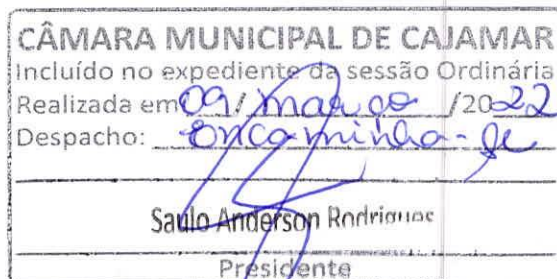 CÂMARA MUNICIPAL DE CAJAMAR
Incluído no expediente da sessão Ordinária
Realizada em 09/ março /2022
Despacho: Encaminha-se
Saulo Anderson Rodrigues
Presidente